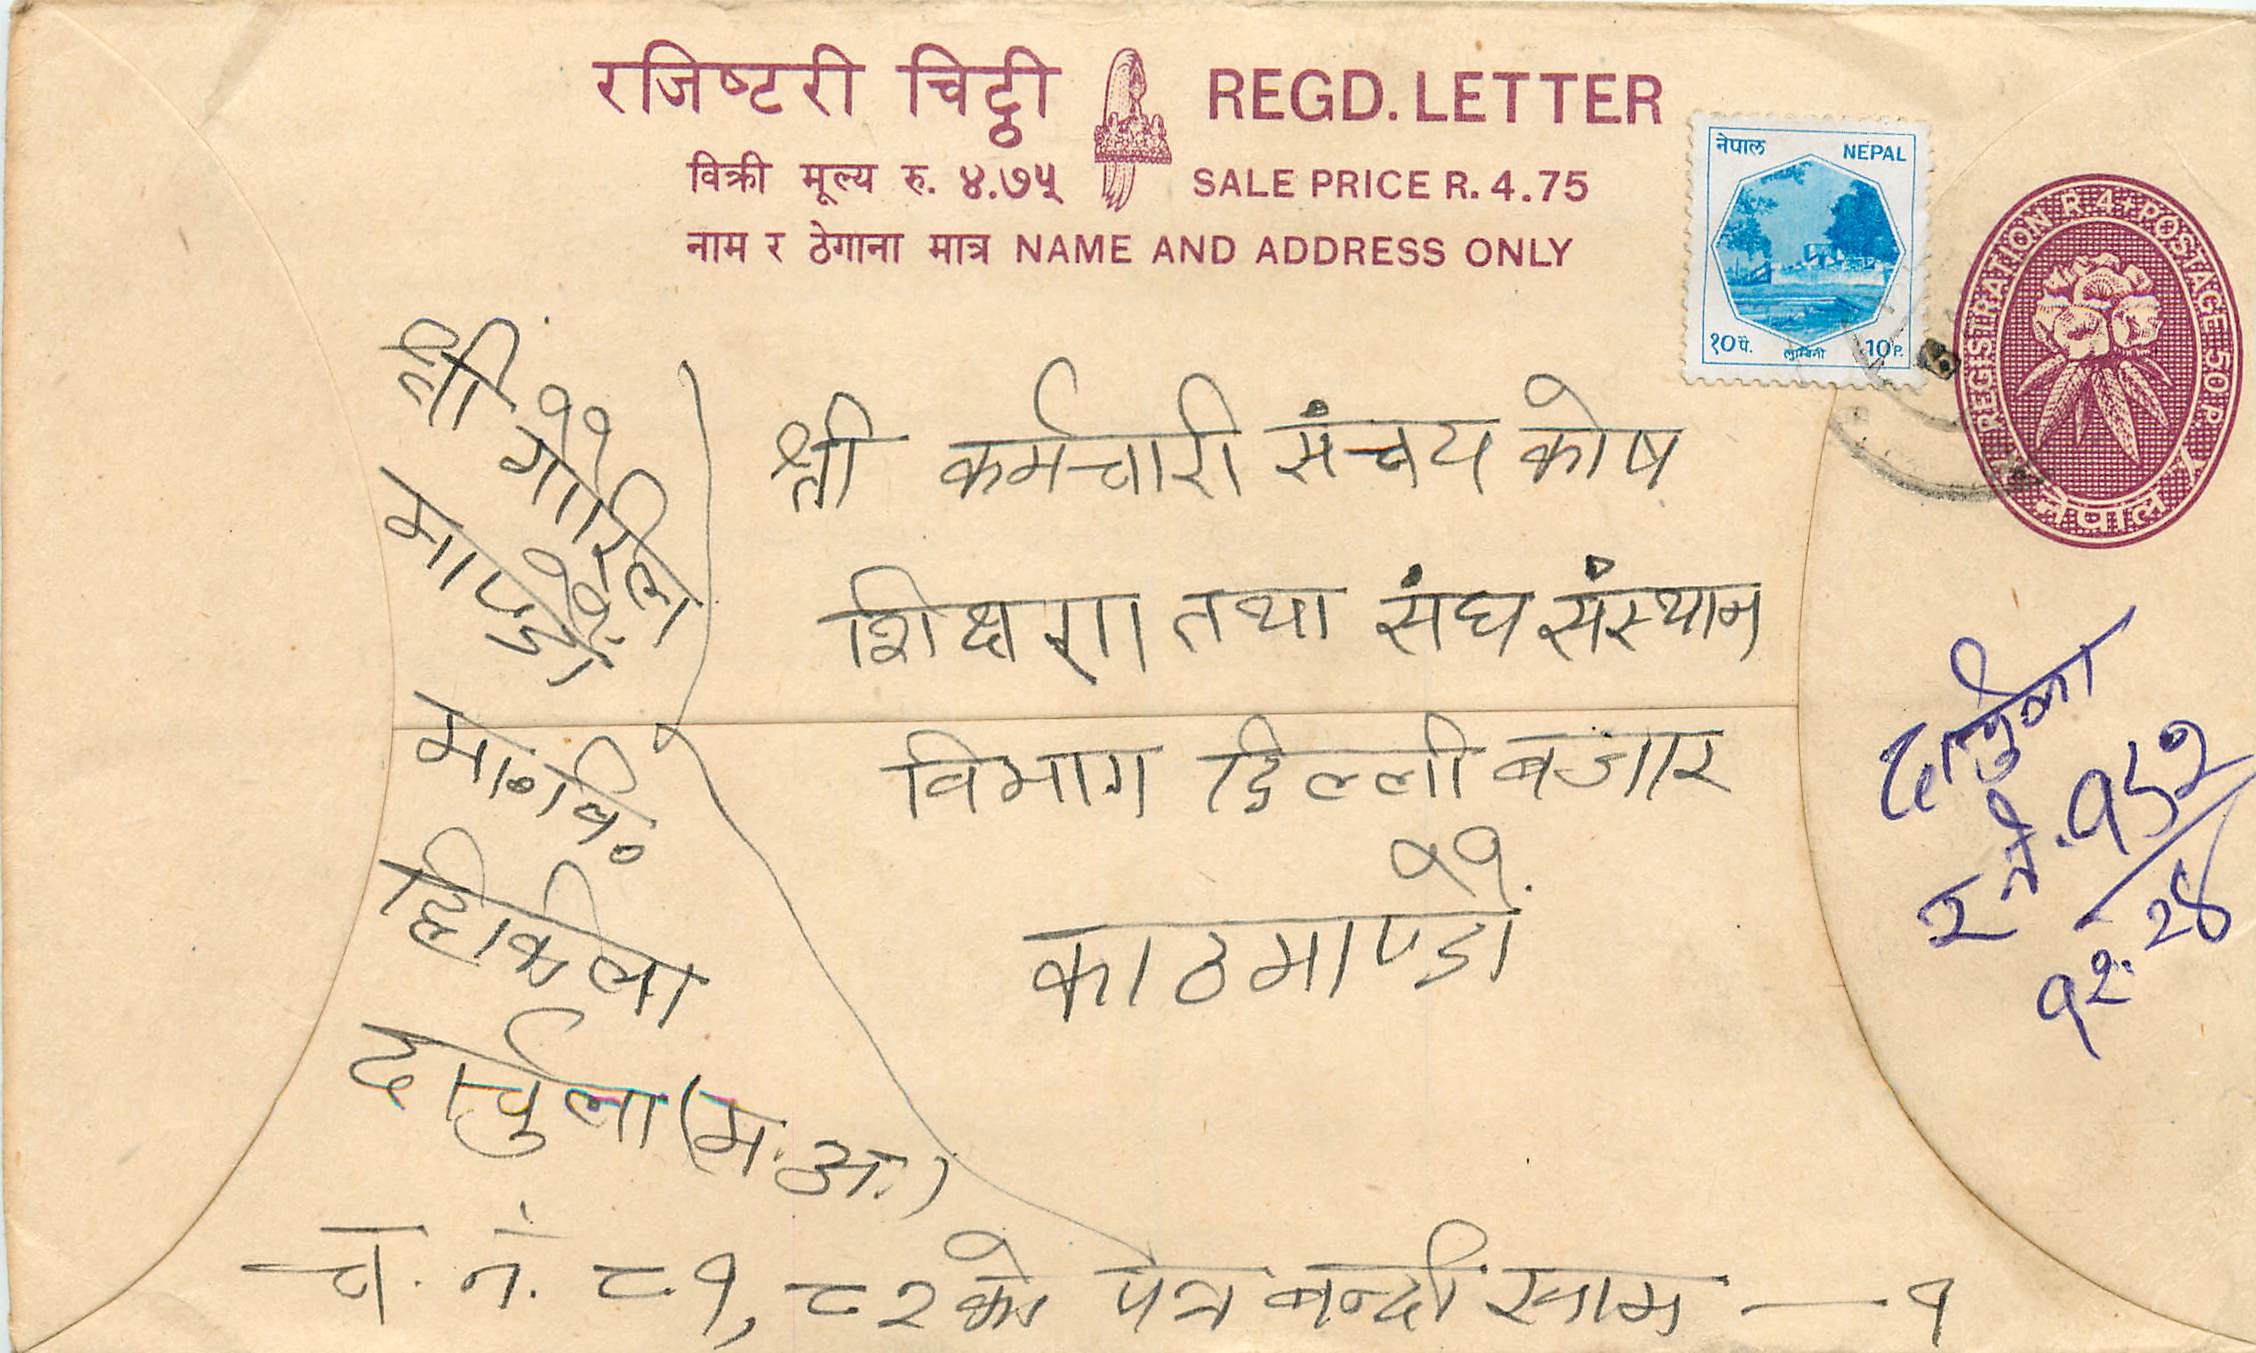 रजिष्टरी चिट्ठी REGD. LETTER
विक्री मूल्य रु. ४.७५ SALE PRICE R. 4.75
नाम र ठेगाना मात्र NAME AND ADDRESS ONLY
नेपाल NEPAL
१० पै. लुम्बिनी 10 P.
REGISTRATION R. 4 + POSTAGE 50 P.
नेपाल
श्री कर्मचारी संचय कोष
शिक्षण तथा संघ संस्थान
विभाग दिल्ली बजार
काठमाण्डौं
श्री गौरीला
मा.वि.
दार्चुला (म.अ.)
र नं. १५२
१२.२४
च. नं. ८१, ८२ को पत्र बन्दी खाम — १